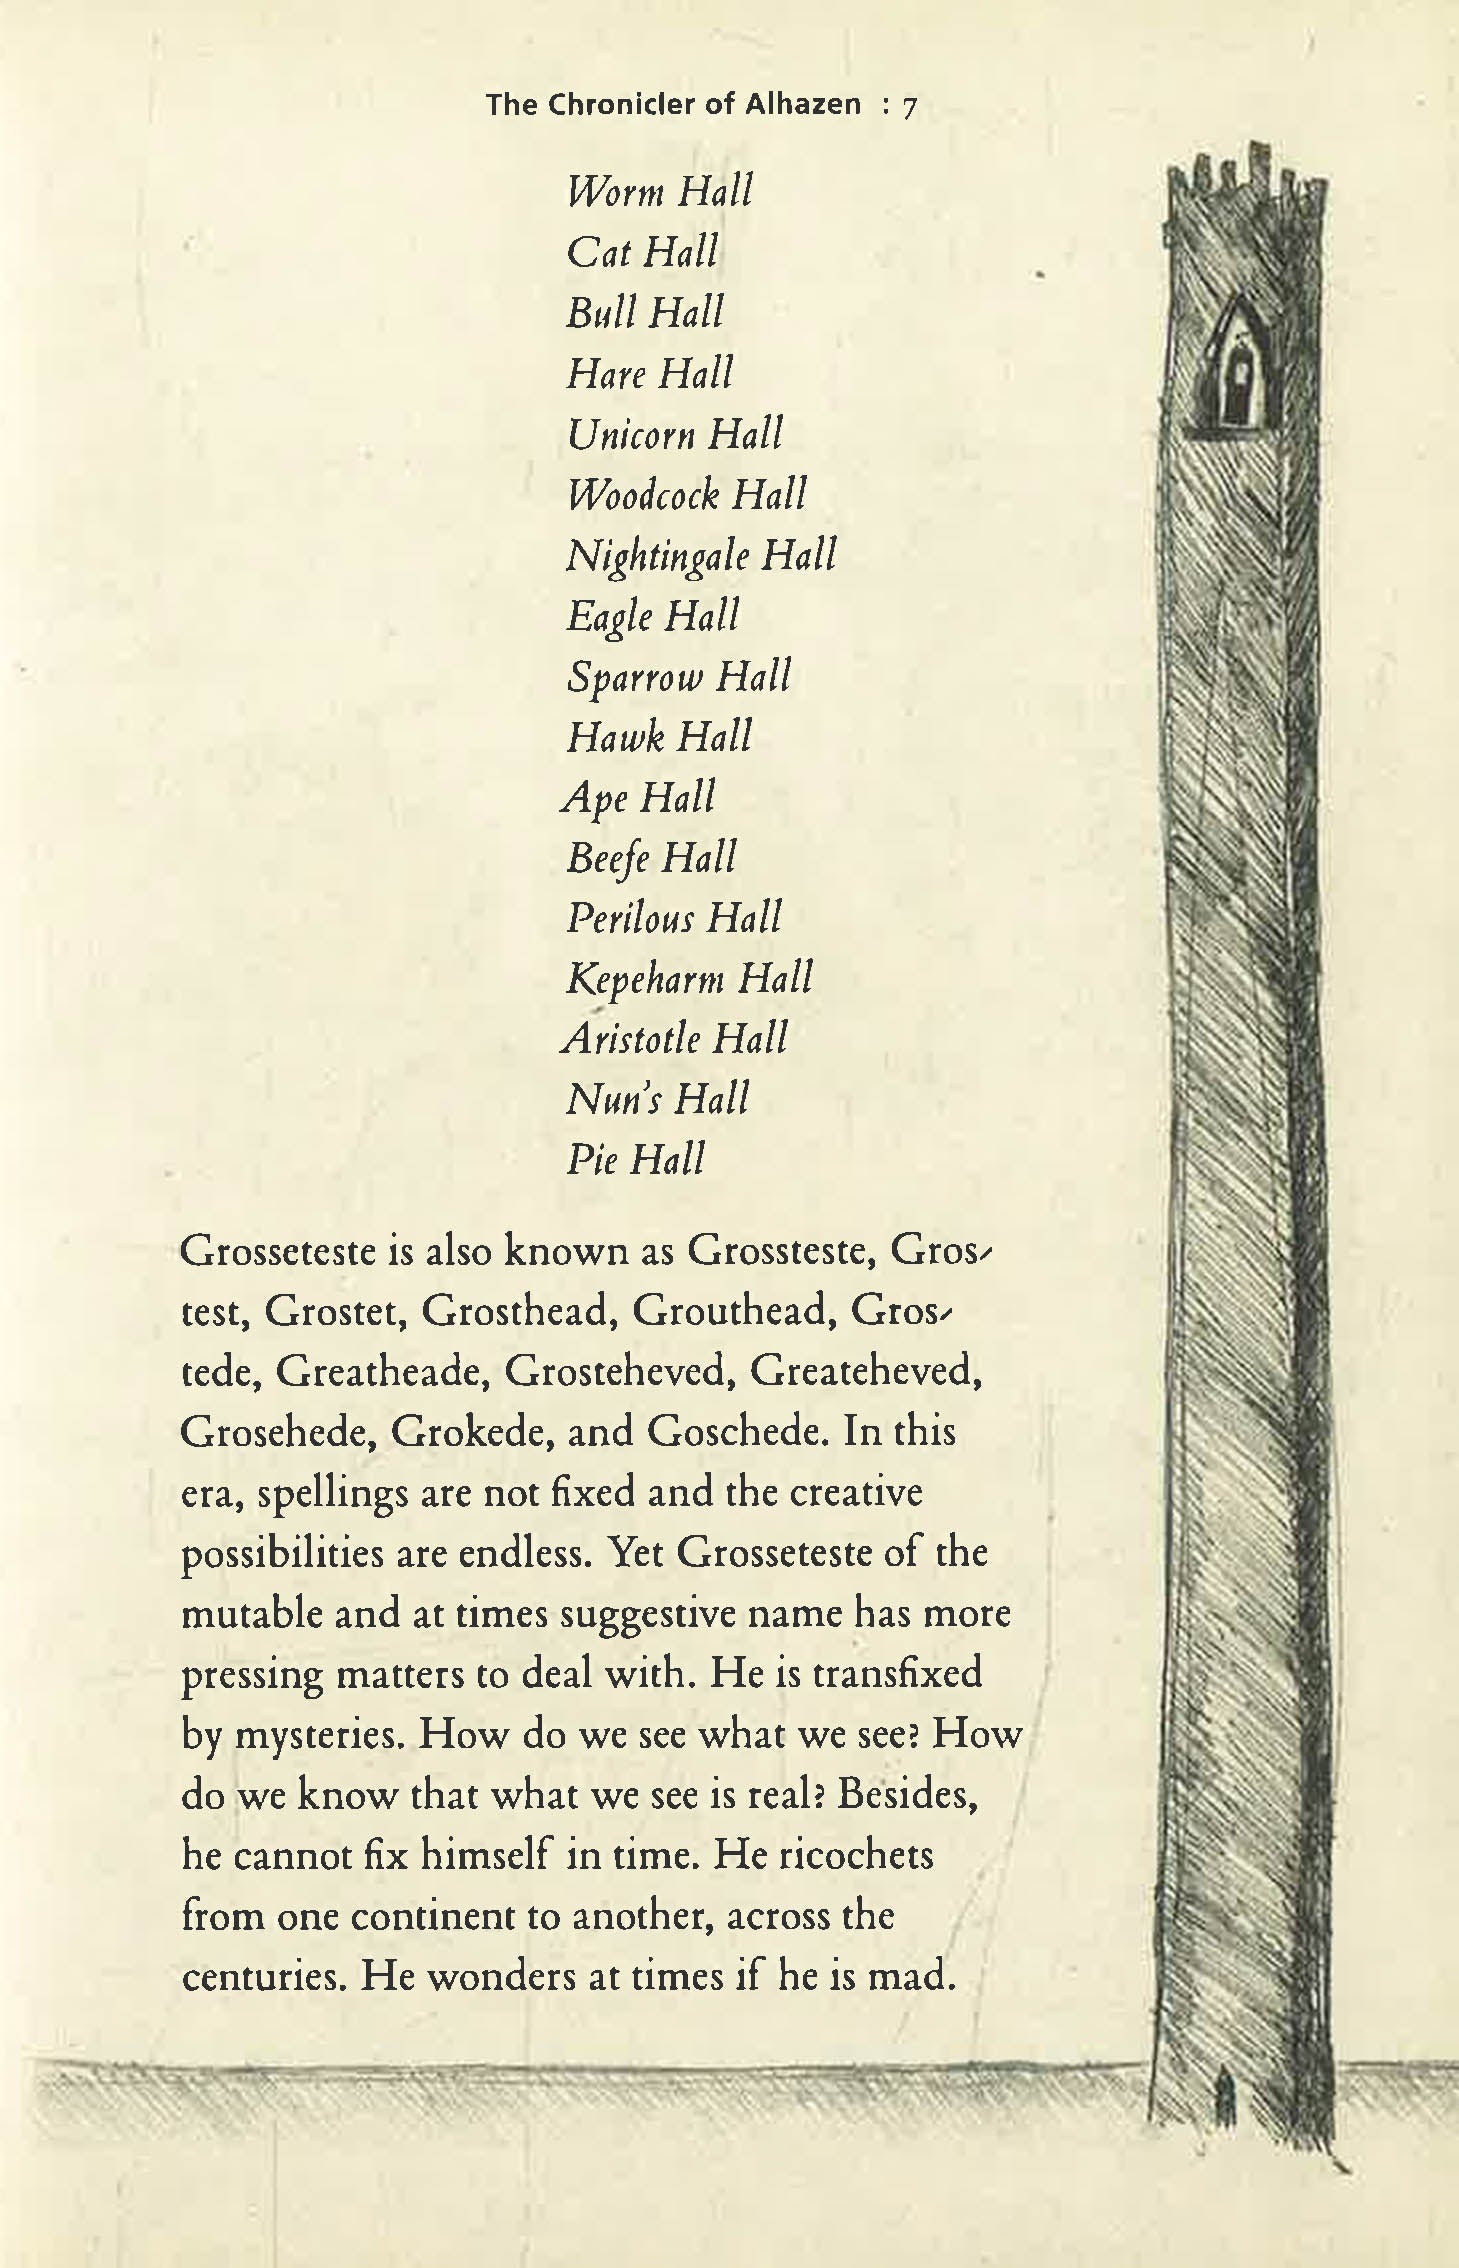 The Chronicler of Alhazen : 7
Worm Hall
Cat Hall
Bull Hall
Hare Hall
Unicorn Hall
Woodcock Hall
Nightingale Hall
Eagle Hall
Sparrow Hall
Hawk Hall
Ape Hall
Beefe Hall
Perilous Hall
Kepeharm Hall
Aristotle Hall
Nun's Hall
Pie Hall
Grosseteste is also known as Grossteste, Gros-
test, Grostet, Grosthead, Grouthead, Gros-
tede, Greatheade, Grosteheved, Greateheved,
Grosehede, Grokede, and Goschede. In this
era, spellings are not fixed and the creative
possibilities are endless. Yet Grosseteste of the
mutable and at times suggestive name has more
pressing matters to deal with. He is transfixed
by mysteries. How do we see what we see? How
do we know that what we see is real? Besides,
he cannot fix himself in time. He ricochets
from one continent to another, across the
centuries. He wonders at times if he is mad.